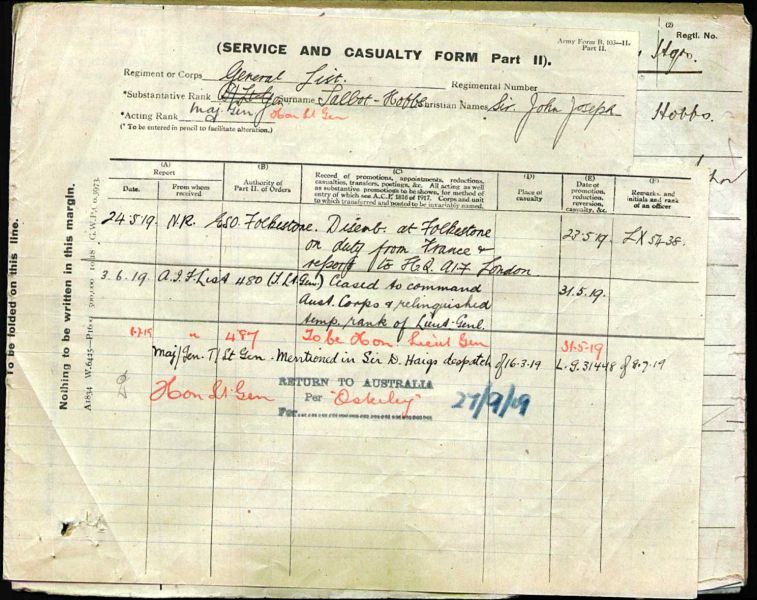 Army Form B. 103—II.
Part II.
(SERVICE AND CASUALTY FORM Part II).
Regiment or Corps General List. Regimental Number
*Substantive Rank Surname Talbot-Hobbs Christian Names Sir John Joseph
*Acting Rank Maj Gen Hon Lt Gen
(* To be entered in pencil to facilitate alteration.)
(A)
Report
Date. From whom received
(B)
Authority of Part II. of Orders
(C)
Record of promotions, appointments, reductions,
casualties, transfers, postings, &c. All acting as well
as substantive promotions to be shown, for method of
entry of which see A.C.I. 1816 of 1917. Corps and unit
to which transferred and posted to be invariably named.
(D)
Place of casualty
(E)
Date of promotion, reduction, reversion, casualty, &c.
(F)
Remarks, and initials and rank of an officer
24.5.19. N.R. ESO. Folkestone. Disemb. at Folkestone 23.5.19. LX 57-38.
on duty from France &
report to H.Q. A.I.F. London.
3.6.19. A.I.F List 480 (T/Lt Gen) Ceased to command 31.5.19.
Aust. Corps & relinquished
temp/rank of Lieut-Genl.
" 487 To be Hon. Lieut Gen 31.5.19
Maj/Gen. T/Lt Gen. Mentioned in Sir D. Haigs despatch of 16-3-19 L.G. 31448 of 8.7.19
Hon Lt-Gen
RETURN TO AUSTRALIA
Per
For
27/9/19
To be folded on this line.
Nothing to be written in this margin.
(2)
Regtl. No.
Hobbs.